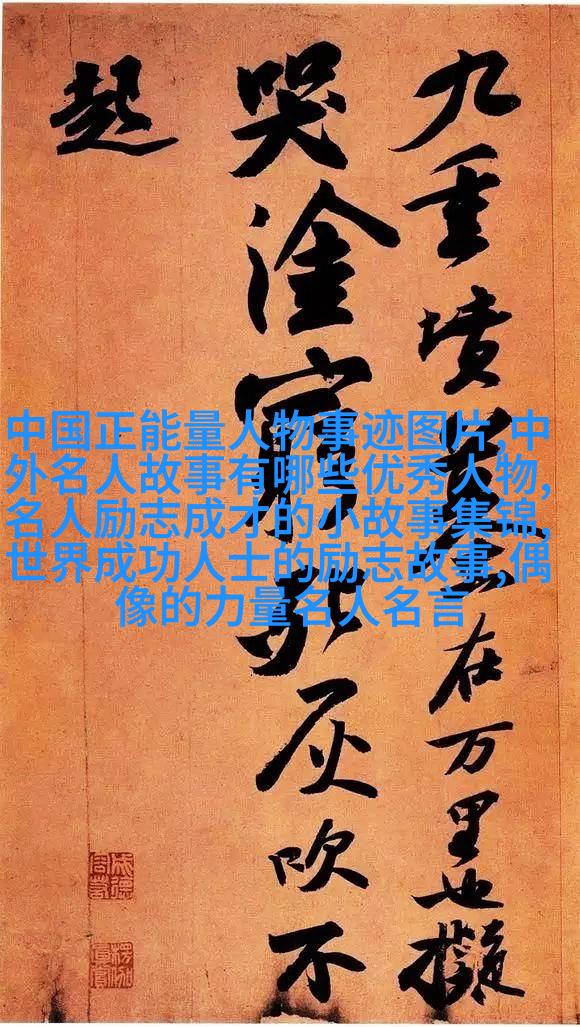 九重墳墓在万里也擬
哭塗窮死灰吹不
起
中国正能量人物事迹图片,中
外名人故事有哪些优秀人物,
名人励志成才的小故事集锦,
世界成功人士的励志故事,偶
像的力量名人名言
成德
容若